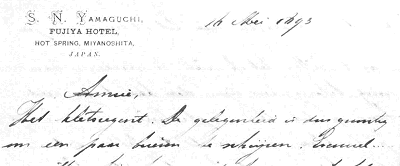 S. N. YAMAGUCHI,
FUJIYA HOTEL,
HOT SPRING, MIYANOSHITA,
JAPAN.
16 Mei 1893
Annie,
Het kletsregent. De gelegenheid is dus gunstig
om een paar brieven te schrijven.